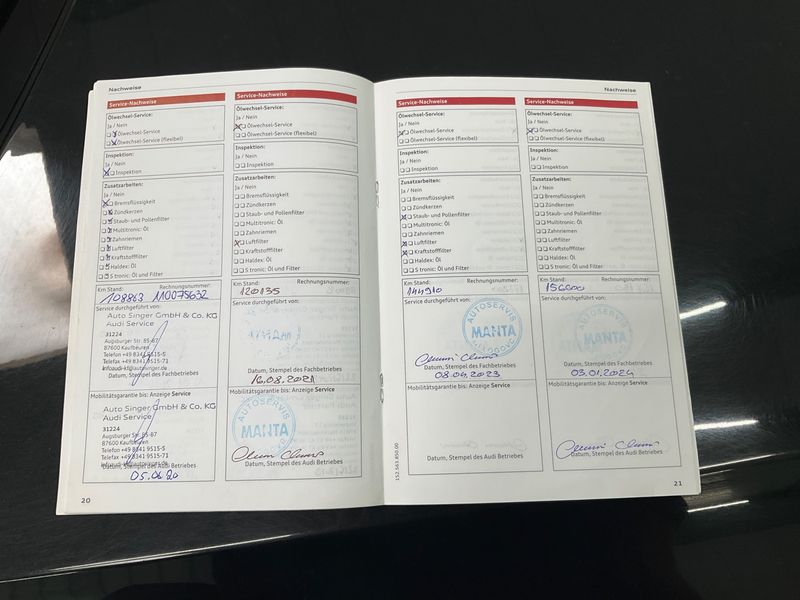 Nachweise
Service-Nachweise
Ölwechsel-Service:
Ja / Nein
Ölwechsel-Service
Ölwechsel-Service (flexibel)
Inspektion:
Ja / Nein
Inspektion
Zusatzarbeiten:
Ja / Nein
Bremsflüssigkeit
Zündkerzen
Staub- und Pollenfilter
Multitronic: Öl
Zahnriemen
Luftfilter
Kraftstofffilter
Haldex: Öl
S tronic: Öl und Filter
Km Stand: Rechnungsnummer:
108863 110075632
Service durchgeführt von:
Auto Singer GmbH & Co. KG
Audi Service
31224
Augsburger Str. 85-87
87600 Kaufbeuren
Telefon +49 8341 9515-5
Telefax +49 8341 9515-71
infoaudi-kf@autosinger.de
Datum, Stempel des Fachbetriebes
Mobilitätsgarantie bis: Anzeige Service
Auto Singer GmbH & Co. KG
Audi Service
31224
Augsburger Str. 85-87
87600 Kaufbeuren
Telefon +49 8341 9515-5
Telefax +49 8341 9515-71
Datum, Stempel des Audi Betriebes
05.06.20
20
Service-Nachweise
Ölwechsel-Service:
Ja / Nein
Ölwechsel-Service
Ölwechsel-Service (flexibel)
Inspektion:
Ja / Nein
Inspektion
Zusatzarbeiten:
Ja / Nein
Bremsflüssigkeit
Zündkerzen
Staub- und Pollenfilter
Multitronic: Öl
Zahnriemen
Luftfilter
Kraftstofffilter
Haldex: Öl
S tronic: Öl und Filter
Km Stand: Rechnungsnummer:
120135
Service durchgeführt von:
MANTA
Datum, Stempel des Fachbetriebes
16.08.2021
Mobilitätsgarantie bis: Anzeige Service
AUTOSERVIS
MANTA
Datum, Stempel des Audi Betriebes
Nachweise
Service-Nachweise
Ölwechsel-Service:
Ja / Nein
Ölwechsel-Service
Ölwechsel-Service (flexibel)
Inspektion:
Ja / Nein
Inspektion
Zusatzarbeiten:
Ja / Nein
Bremsflüssigkeit
Zündkerzen
Staub- und Pollenfilter
Multitronic: Öl
Zahnriemen
Luftfilter
Kraftstofffilter
Haldex: Öl
S tronic: Öl und Filter
Km Stand: Rechnungsnummer:
144910
Service durchgeführt von:
AUTOSERVIS
MANTA
Datum, Stempel des Fachbetriebes
08.04.2023
Mobilitätsgarantie bis: Anzeige Service
Datum, Stempel des Audi Betriebes
152.563.850.00
Service-Nachweise
Ölwechsel-Service:
Ja / Nein
Ölwechsel-Service
Ölwechsel-Service (flexibel)
Inspektion:
Ja / Nein
Inspektion
Zusatzarbeiten:
Ja / Nein
Bremsflüssigkeit
Zündkerzen
Staub- und Pollenfilter
Multitronic: Öl
Zahnriemen
Luftfilter
Kraftstofffilter
Haldex: Öl
S tronic: Öl und Filter
Km Stand: Rechnungsnummer:
156000
Service durchgeführt von:
MANTA
Datum, Stempel des Fachbetriebes
03.01.2024
Mobilitätsgarantie bis: Anzeige Service
Datum, Stempel des Audi Betriebes
21